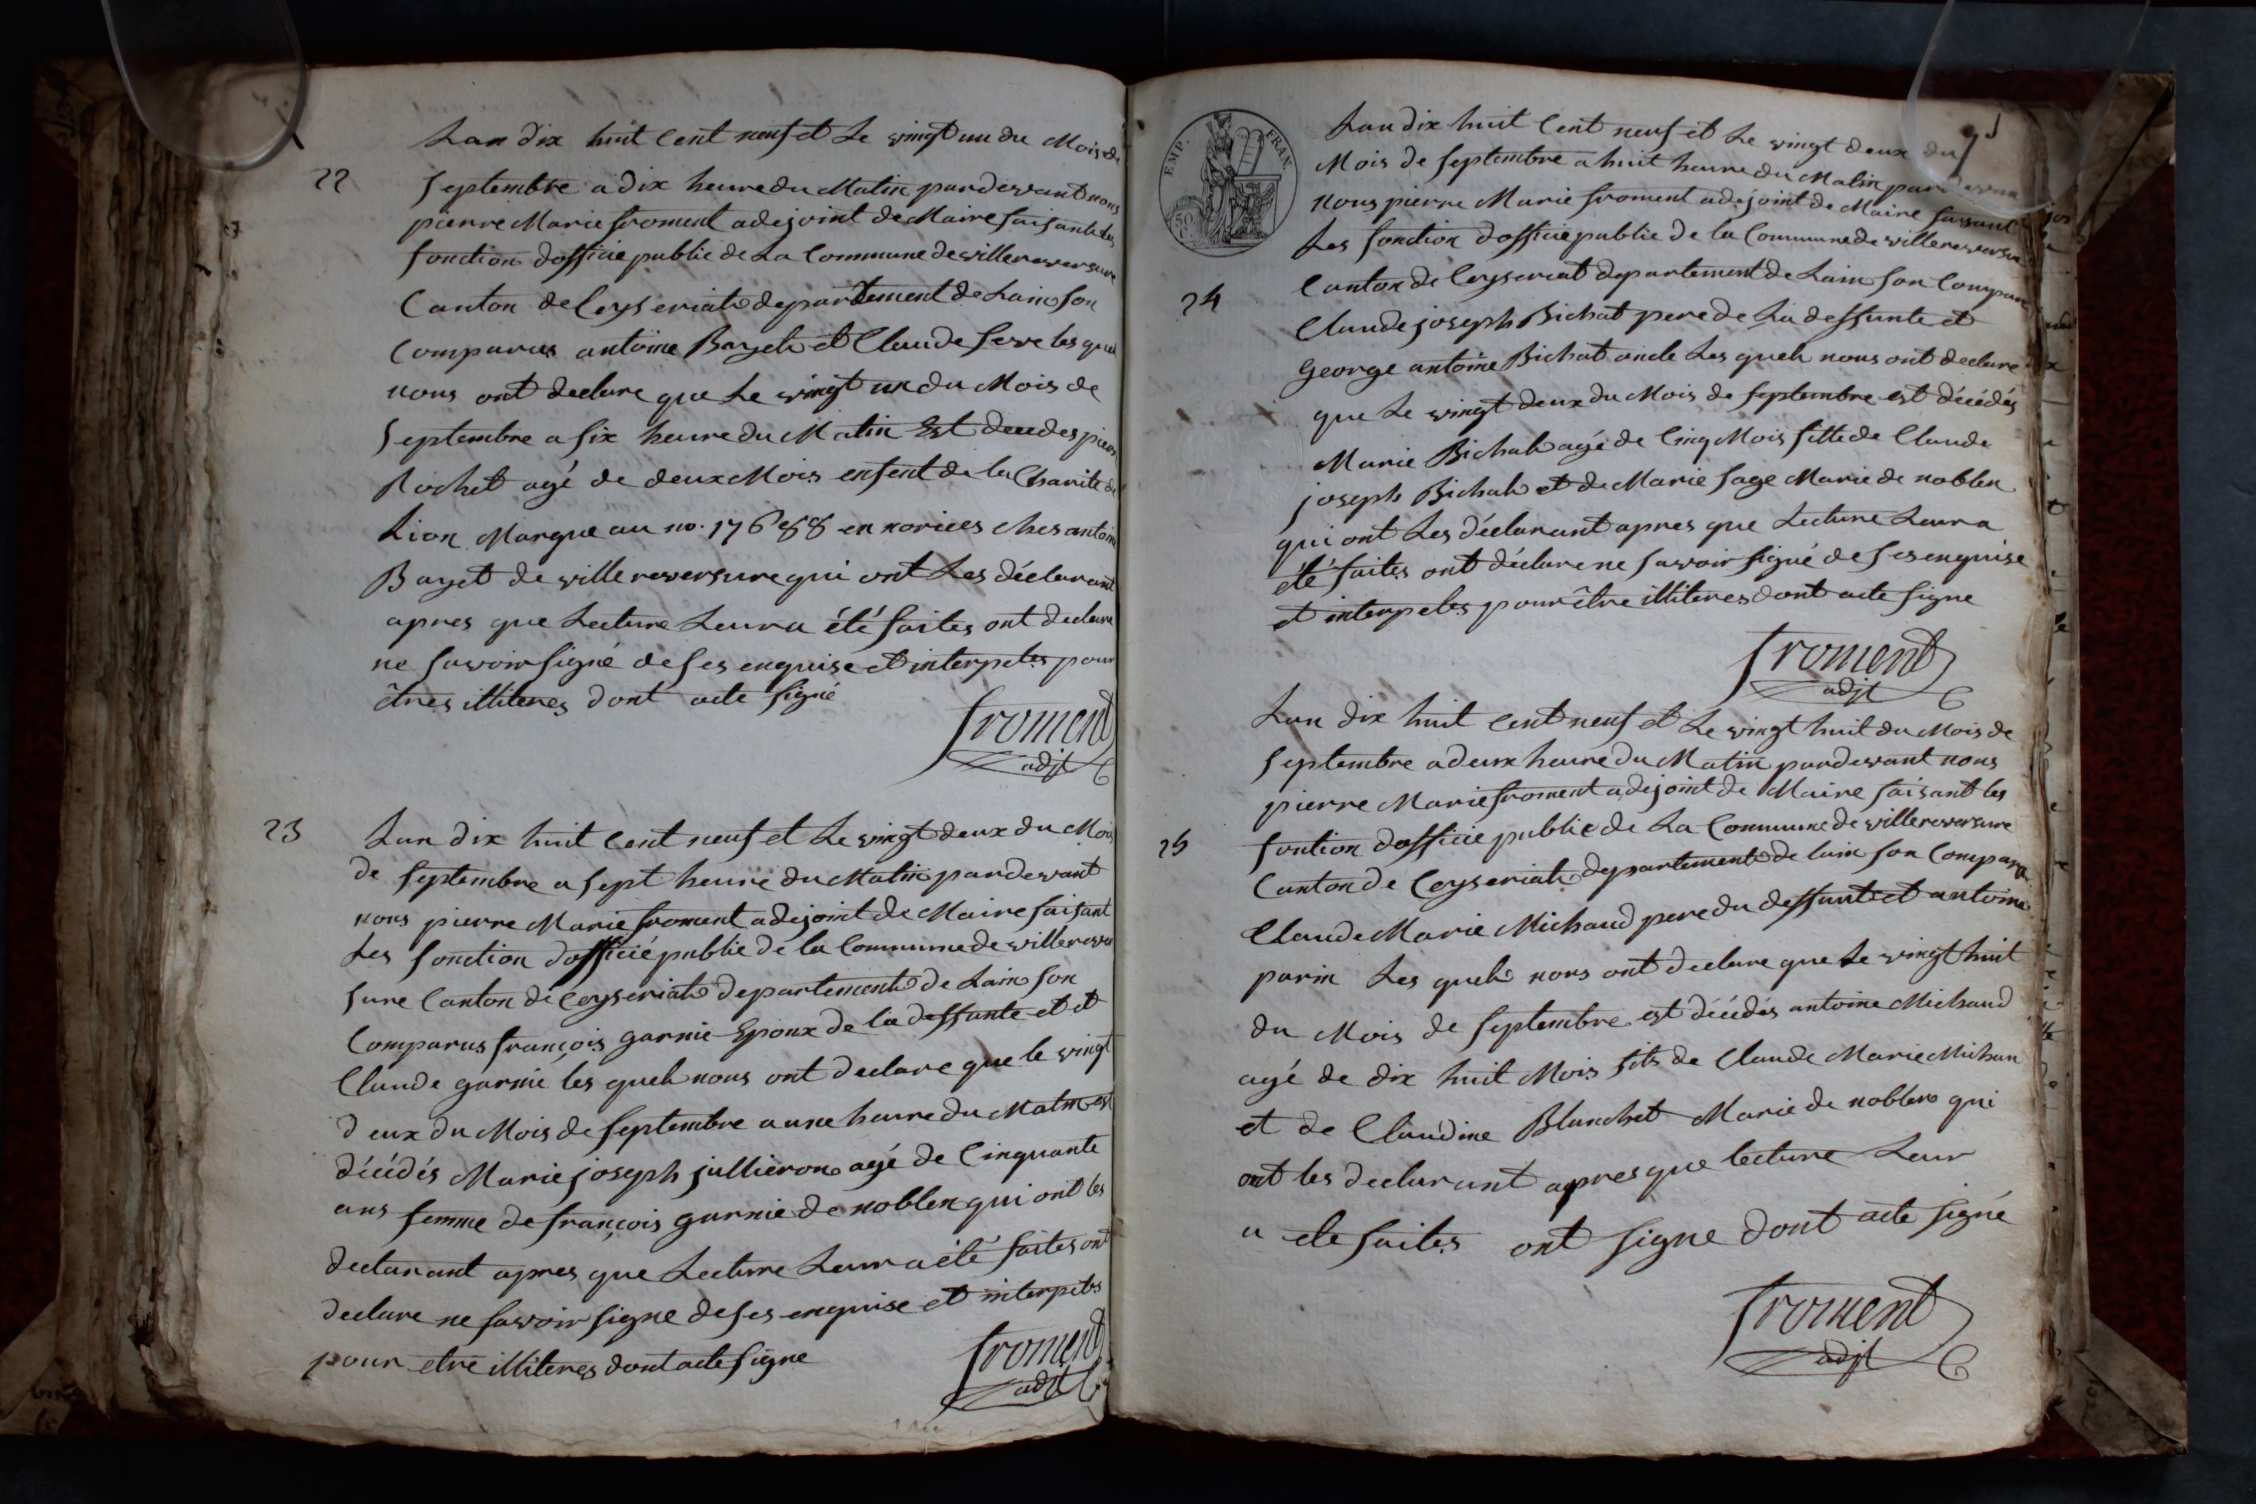 Lan dix huit Cent neuf et Le vingt un du Mois de
22
Septembre a dix heure du Matin pardevant nous
pierre Marie froment adejoint de Maire faisant les
fonction dofficié public de La Commune de villereversure
Canton de Ceyseriat departement de Lain son
Comparus antoine Bayet et Claude ferre les quel
nous ont declare que Le vingt un du Mois de
Septembre a six heure du Matin Est decedes pierre
Rochet agé de deux Mois enfent de la Charite de
Lion Marque au no. 17688 en norices ches antoine
Bayet de villereversure qui ont Les déclarant
apres que Lecture Leur a été faites ont declare
ne savoir signé de ses enquise et interpeles pour
êtres illiteres dont acte signé
froment
adjt
23
Lan dix huit Cent neuf et Le vingt deux du Mois
de septembre a sept heure du Matin pardevant
nous pierre Marie froment adejoint de Maire faisant
Les fonction dofficié public de la Commune de villerever
sure Canton de Ceyseriat departement de Lain son
Comparus françois garnie Epoux de la deffunte et et
Claude garnie les quel nous ont declare que le vingt
deux du Mois de septembre a une heure du Matin est
décédés Marie joseph jullieron agé de Cinquante
ans femme de françois garnie de noblen qui ont les
declarant apres que Lecture Leur a été faites ont
declare ne savoir signe de ses enquise et interpeles
pour etre illiteres dont acte signe
froment
adjt
EMP. FRAN
50 C
Lan dix huit Cent neuf et Le vingt deux du
Mois de septembre a huit heure du Matin pardevant
nous pierre Marie froment adejoint de Maire faisant
Les fonction dofficié public de la Commune de villereversure
24
Canton de Ceyseriat departement de Lain son Comparu
Claude joseph Bichat pere de La deffunte et
george antoine Bichat oncle Les quels nous ont declaré
que Le vingt deux du Mois de septembre est décédés
Marie Bichat agé de Cinq Mois fille de Claude
joseph Bichat et de Marie sage Marie de noblen
qui ont Les déclarant apres que Lecture Leur a
été faites ont déclare ne savoir signé de ses enquise
et interpeles pour être illiteres dont acte signe
froment
adjt
Lan dix huit Cent neuf et Le vingt huit du Mois de
Septembre a deux heure du Matin pardevant nous
pierre Marie froment adejoint de Maire faisant les
25
fontion dofficié public de La Commune de villereversure
Canton de Ceyseriat departement de lain son Comparu
Claude Marie Michaud pere du deffunt et antoine
parin Les quels nous ont declare que Le vingt huit
du Mois de septembre est décédés antoine Michaud
agé de dix huit Mois fils de Claude Marie Michau
et de Claudine Blanchet Marie de noblen qui
ont les declarant apres que lecture Leur
a ete faites ont signe dont acte signé
froment
adjt